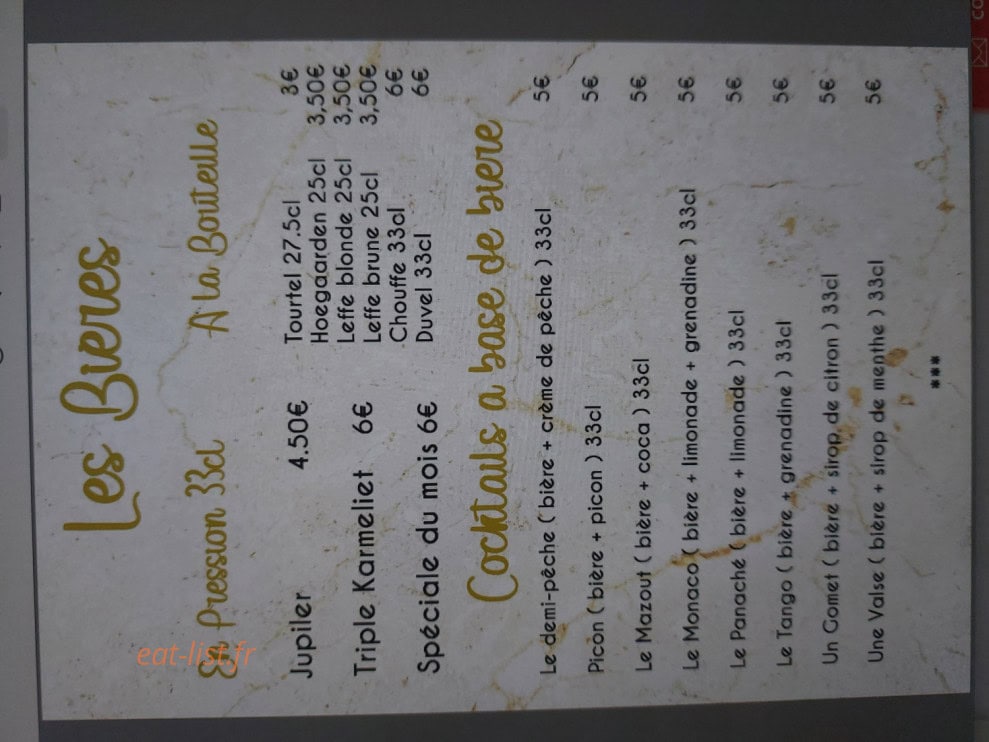 Les Bieres
En Pression 33cl
Jupiler 4.50€
Triple Karmeliet 6€
Spéciale du mois 6€
A la Bouteille
Tourtel 27.5cl 3€
Hoegaarden 25cl 3,50€
Leffe blonde 25cl 3,50€
Leffe brune 25cl 3,50€
Chouffe 33cl 6€
Duvel 33cl 6€
Cocktails a base de biere
Le demi-pêche ( bière + crème de pêche ) 33cl 5€
Picon ( bière + picon ) 33cl 5€
Le Mazout ( bière + coca ) 33cl 5€
Le Monaco ( bière + limonade + grenadine ) 33cl 5€
Le Panaché ( bière + limonade ) 33cl 5€
Le Tango ( bière + grenadine ) 33cl 5€
Un Gomet ( bière + sirop de citron ) 33cl 5€
Une Valse ( bière + sirop de menthe ) 33cl 5€
***
eat-list.fr